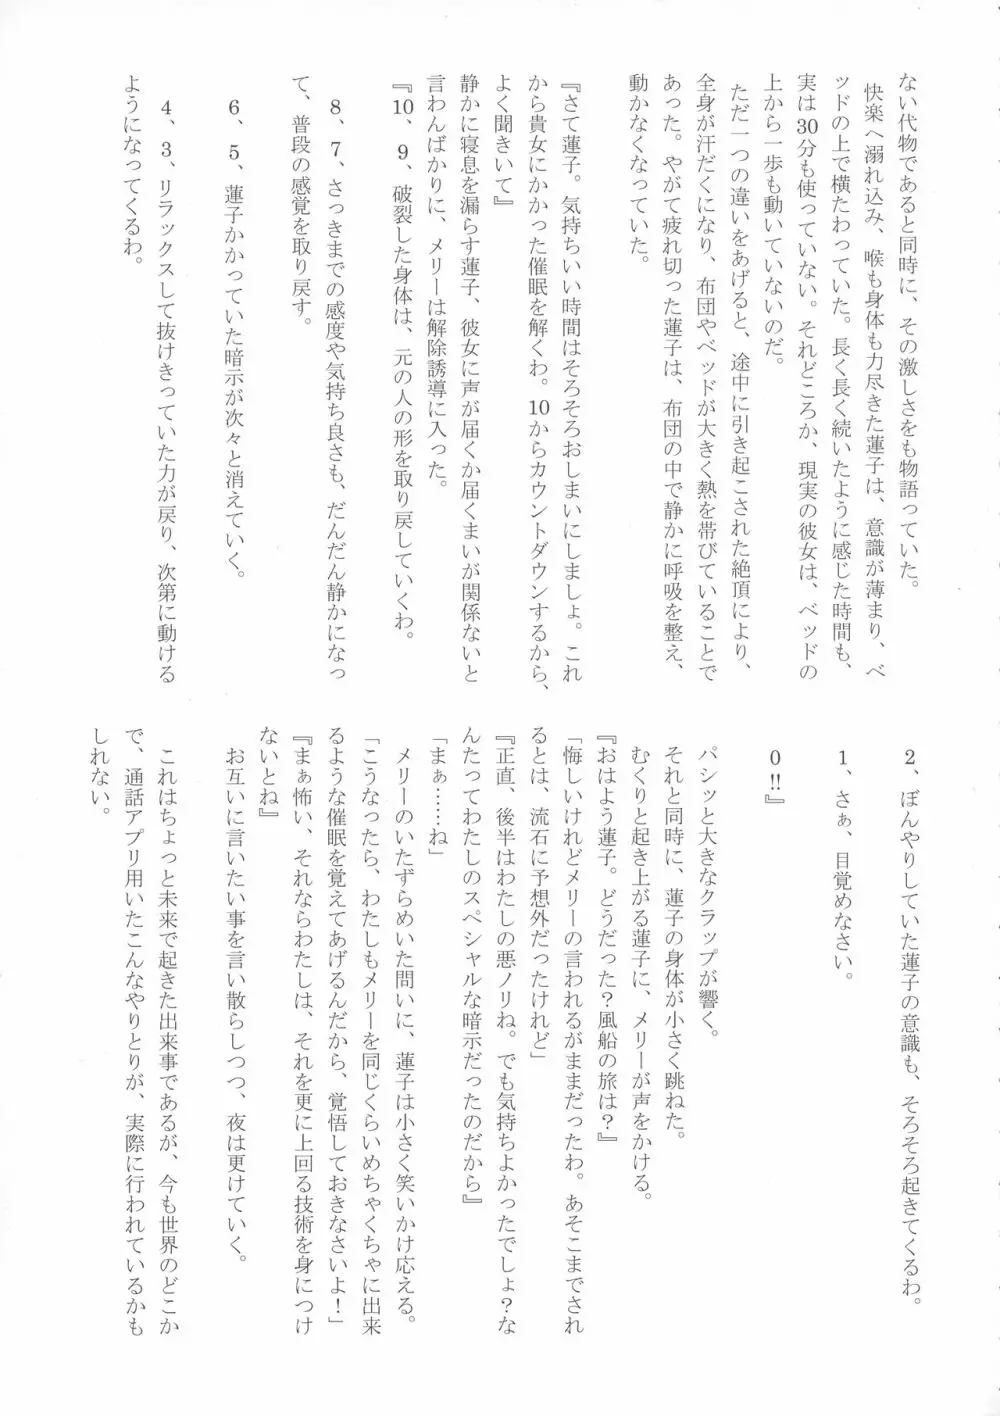 ない代物であると同時に、その激しさをも物語っていた。
快楽へ溺れ込み、喉も身体も力尽きた蓮子は、意識が薄まり、ベ
ッドの上で横たわっていた。長く長く続いたように感じた時間も、
実は30分も使っていない。それどころか、現実の彼女は、ベッドの
上から一歩も動いていないのだ。
ただ一つの違いをあげると、途中に引き起こされた絶頂により、
全身が汗だくになり、布団やベッドが大きく熱を帯びていることで
あった。やがて疲れ切った蓮子は、布団の中で静かに呼吸を整え、
動かなくなっていた。
『さて蓮子。気持ちいい時間はそろそろおしまいにしましょ。これ
から貴女にかかった催眠を解くわ。10からカウントダウンするから、
よく聞きいて』
静かに寝息を漏らす蓮子、彼女に声が届くか届くまいが関係ないと
言わんばかりに、メリーは解除誘導に入った。
『10、9、破裂した身体は、元の人の形を取り戻していくわ。
8、7、さっきまでの感度や気持ち良さも、だんだん静かになっ
て、普段の感覚を取り戻す。
6、5、蓮子かかっていた暗示が次々と消えていく。
4、3、リラックスして抜けきっていた力が戻り、次第に動ける
ようになってくるわ。
2、ぼんやりしていた蓮子の意識も、そろそろ起きてくるわ。
1、さぁ、目覚めなさい。
0!!』
パシッと大きなクラップが響く。
それと同時に、蓮子の身体が小さく跳ねた。
むくりと起き上がる蓮子に、メリーが声をかける。
『おはよう蓮子。どうだった？風船の旅は？』
「悔しいけれどメリーの言われるがままだったわ。あそこまでされ
るとは、流石に予想外だったけれど」
『正直、後半はわたしの悪ノリね。でも気持ちよかったでしょ？な
んたってわたしのスペシャルな暗示だったのだから』
「まぁ……ね」
メリーのいたずらめいた問いに、蓮子は小さく笑いかけ応える。
「こうなったら、わたしもメリーを同じくらいめちゃくちゃに出来
るような催眠を覚えてあげるんだから、覚悟しておきなさいよ！」
『まぁ怖い、それならわたしは、それを更に上回る技術を身につけ
ないとね』
お互いに言いたい事を言い散らしつつ、夜は更けていく。
これはちょっと未来で起きた出来事であるが、今も世界のどこか
で、通話アプリ用いたこんなやりとりが、実際に行われているかも
しれない。